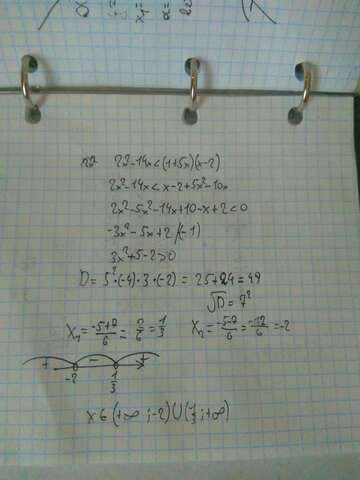 2x²-14x<(1+5x)(x-2)
2x²-14x<x-2+5x²-10x
2x²-5x²-14x+10-x+2<0
-3x²-5x+2 /(-1)
3x²+5-2>0
D=5²·(-4)·3·(-2)=25+24=49
√D=7²
X₁=-5+7/6=2/6=1/3 X₂=-5-7/6=-12/6=-2
+ - +
-2 1/3
x∈(+∞;-2)∪(1/3;+∞)